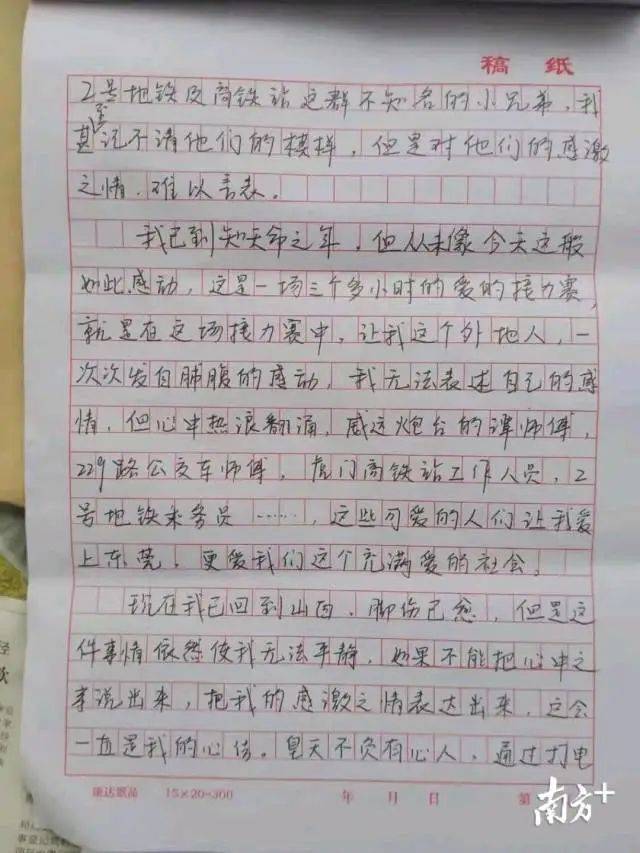 稿 纸
2号地铁及高铁站这群不知名的小兄弟,我
甚至记不清他们的模样,但是对他们的感激
之情,难以言表。
我已到知天命之年,但从未像今天这般
如此感动,这是一场三个多小时的爱的接力赛,
就是在这场接力赛中,让我这个外地人,一
次次发自肺腑的感动,我无法表述自己的感
情,但心中热浪翻涌,威远炮台的谭师傅,
229路公交车师傅,虎门高铁站工作人员,2
号地铁乘务员……,这些可爱的人们让我爱
上东莞,更爱我们这个充满爱的社会。
现在我已回到山西,脚伤已愈,但是这
件事情依然使我无法平静,如果不能把心中之
事说出来,把我的感激之情表达出来,这会
一直是我的心结。皇天不负有心人,通过打电
15×20=300 年 月 日 第
南方+